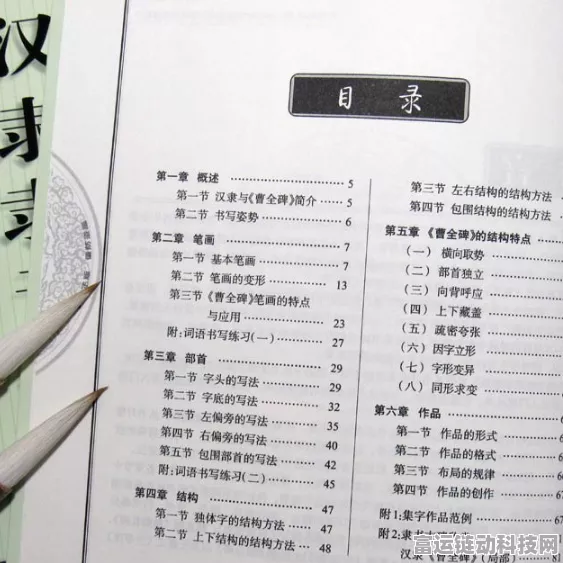 汉
隶
隶
目 录
第一章 概述 …… 5
第一节 汉隶与《曹全碑》简介 …… 5
第二节 书写姿势 …… 6
第二章 笔画 …… 7
第一节 基本笔画 …… 7
第二节 笔画的变形 …… 13
第三节《曹全碑》笔画的特点
与应用 …… 23
附:词语书写练习(一) …… 27
第三章 部首 …… 29
第一节 字头的写法 …… 29
第二节 字底的写法 …… 32
第三节 左偏旁的写法 …… 35
第四节 右偏旁的写法 …… 40
第五节 包围部首的写法 …… 42
附:词语书写练习(二) …… 45
第四章 结构 …… 47
第一节 独体字的结构方法 …… 47
第二节 上下结构的结构方法 …… 48
第三节 左右结构的结构方法
第四节 包围结构的结构方法
第五章《曹全碑》的结构特点
(一) 横向取势
(二) 部首独立
(三) 向背呼应
(四) 上下藏盖
(五) 疏密夸张
(六) 因字立形
(七) 字形变异
(八) 同形求变
第六章 作品
第一节 作品的形式
第二节 作品的格式
第三节 布局的规律
第四节 作品的创作
附1:集字作品范例
附2:隶
汉隶《曹全碑》(局部)
富运链动科技网